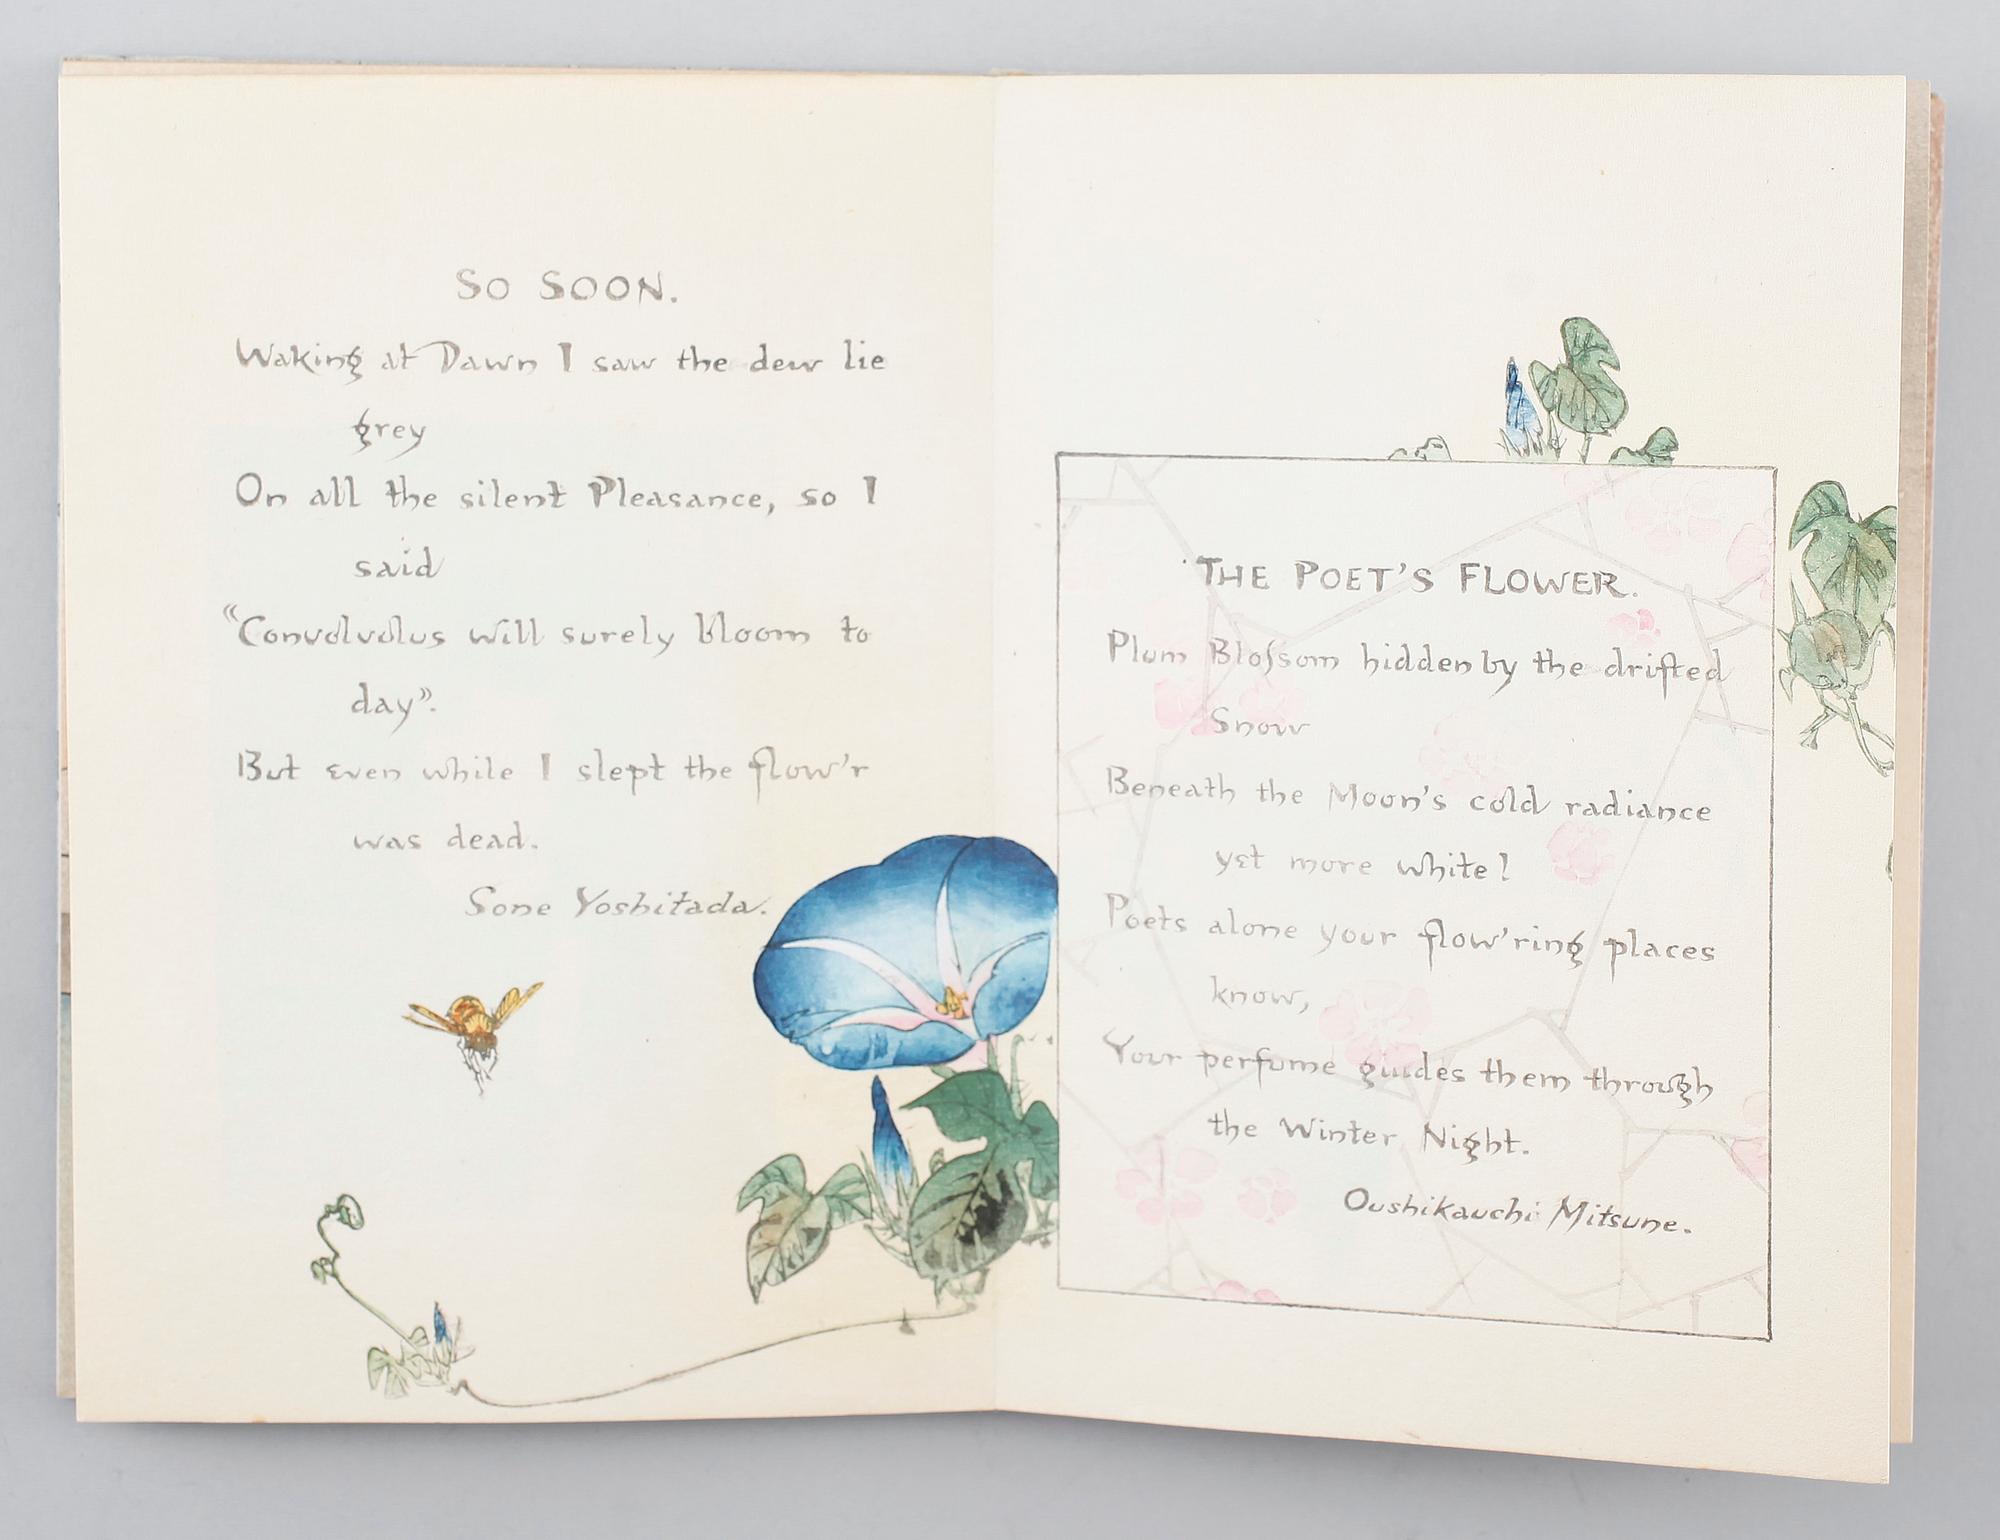 SO SOON.
Waking at Dawn I saw the dew lie
grey
On all the silent Pleasance, so I
said
"Convolvulus will surely bloom to
day".
But even while I slept the flow'r
was dead.
Sone Yoshitada.
THE POET'S FLOWER.
Plum Blossom hidden by the drifted
Snow
Beneath the Moon's cold radiance
yet more white!
Poets alone your flow'ring places
know,
Your perfume guides them through
the Winter Night.
Oushikauchi Mitsune.